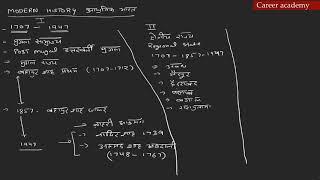 Career academy
MODERN HISTORY आधुनिक भारत
I
1707 - 1947
मुगल साम्राज्य
Post mugal उत्तरवर्ती मुगल
मुगल राज्य
बहादुर शाह प्रथम (1707-1712)
1857 - बहादुर शाह जफर
बाहरी आक्रमण
नादिर शाह 1739
अहमद शाह अब्दाली
(1748 - 1767)
1947
II
क्षेत्रीय राज्य
Regional State
1707 - 1857 - 1947
अवध
मैसूर
हैदराबाद
पंजाब
बंगाल